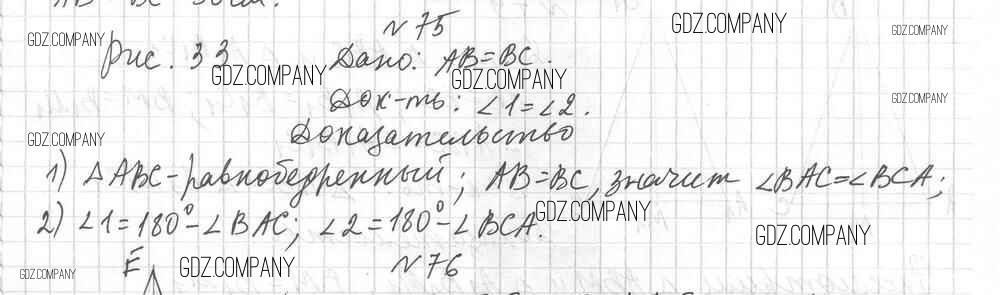 № 75
GDZ.COMPANY GDZ.COMPANY GDZ.COMPANY
Рис. 33 Дано: AB=BC.
GDZ.COMPANY GDZ.COMPANY
Док-ть: ∠1=∠2.
GDZ.COMPANY
Доказательство
GDZ.COMPANY
1) △ABC-равнобедренный; AB=BC, значит ∠BAC=∠BCA;
2) ∠1=180°-∠BAC; ∠2=180°-∠BCA.
GDZ.COMPANY GDZ.COMPANY
E № 76
GDZ.COMPANY GDZ.COMPANY